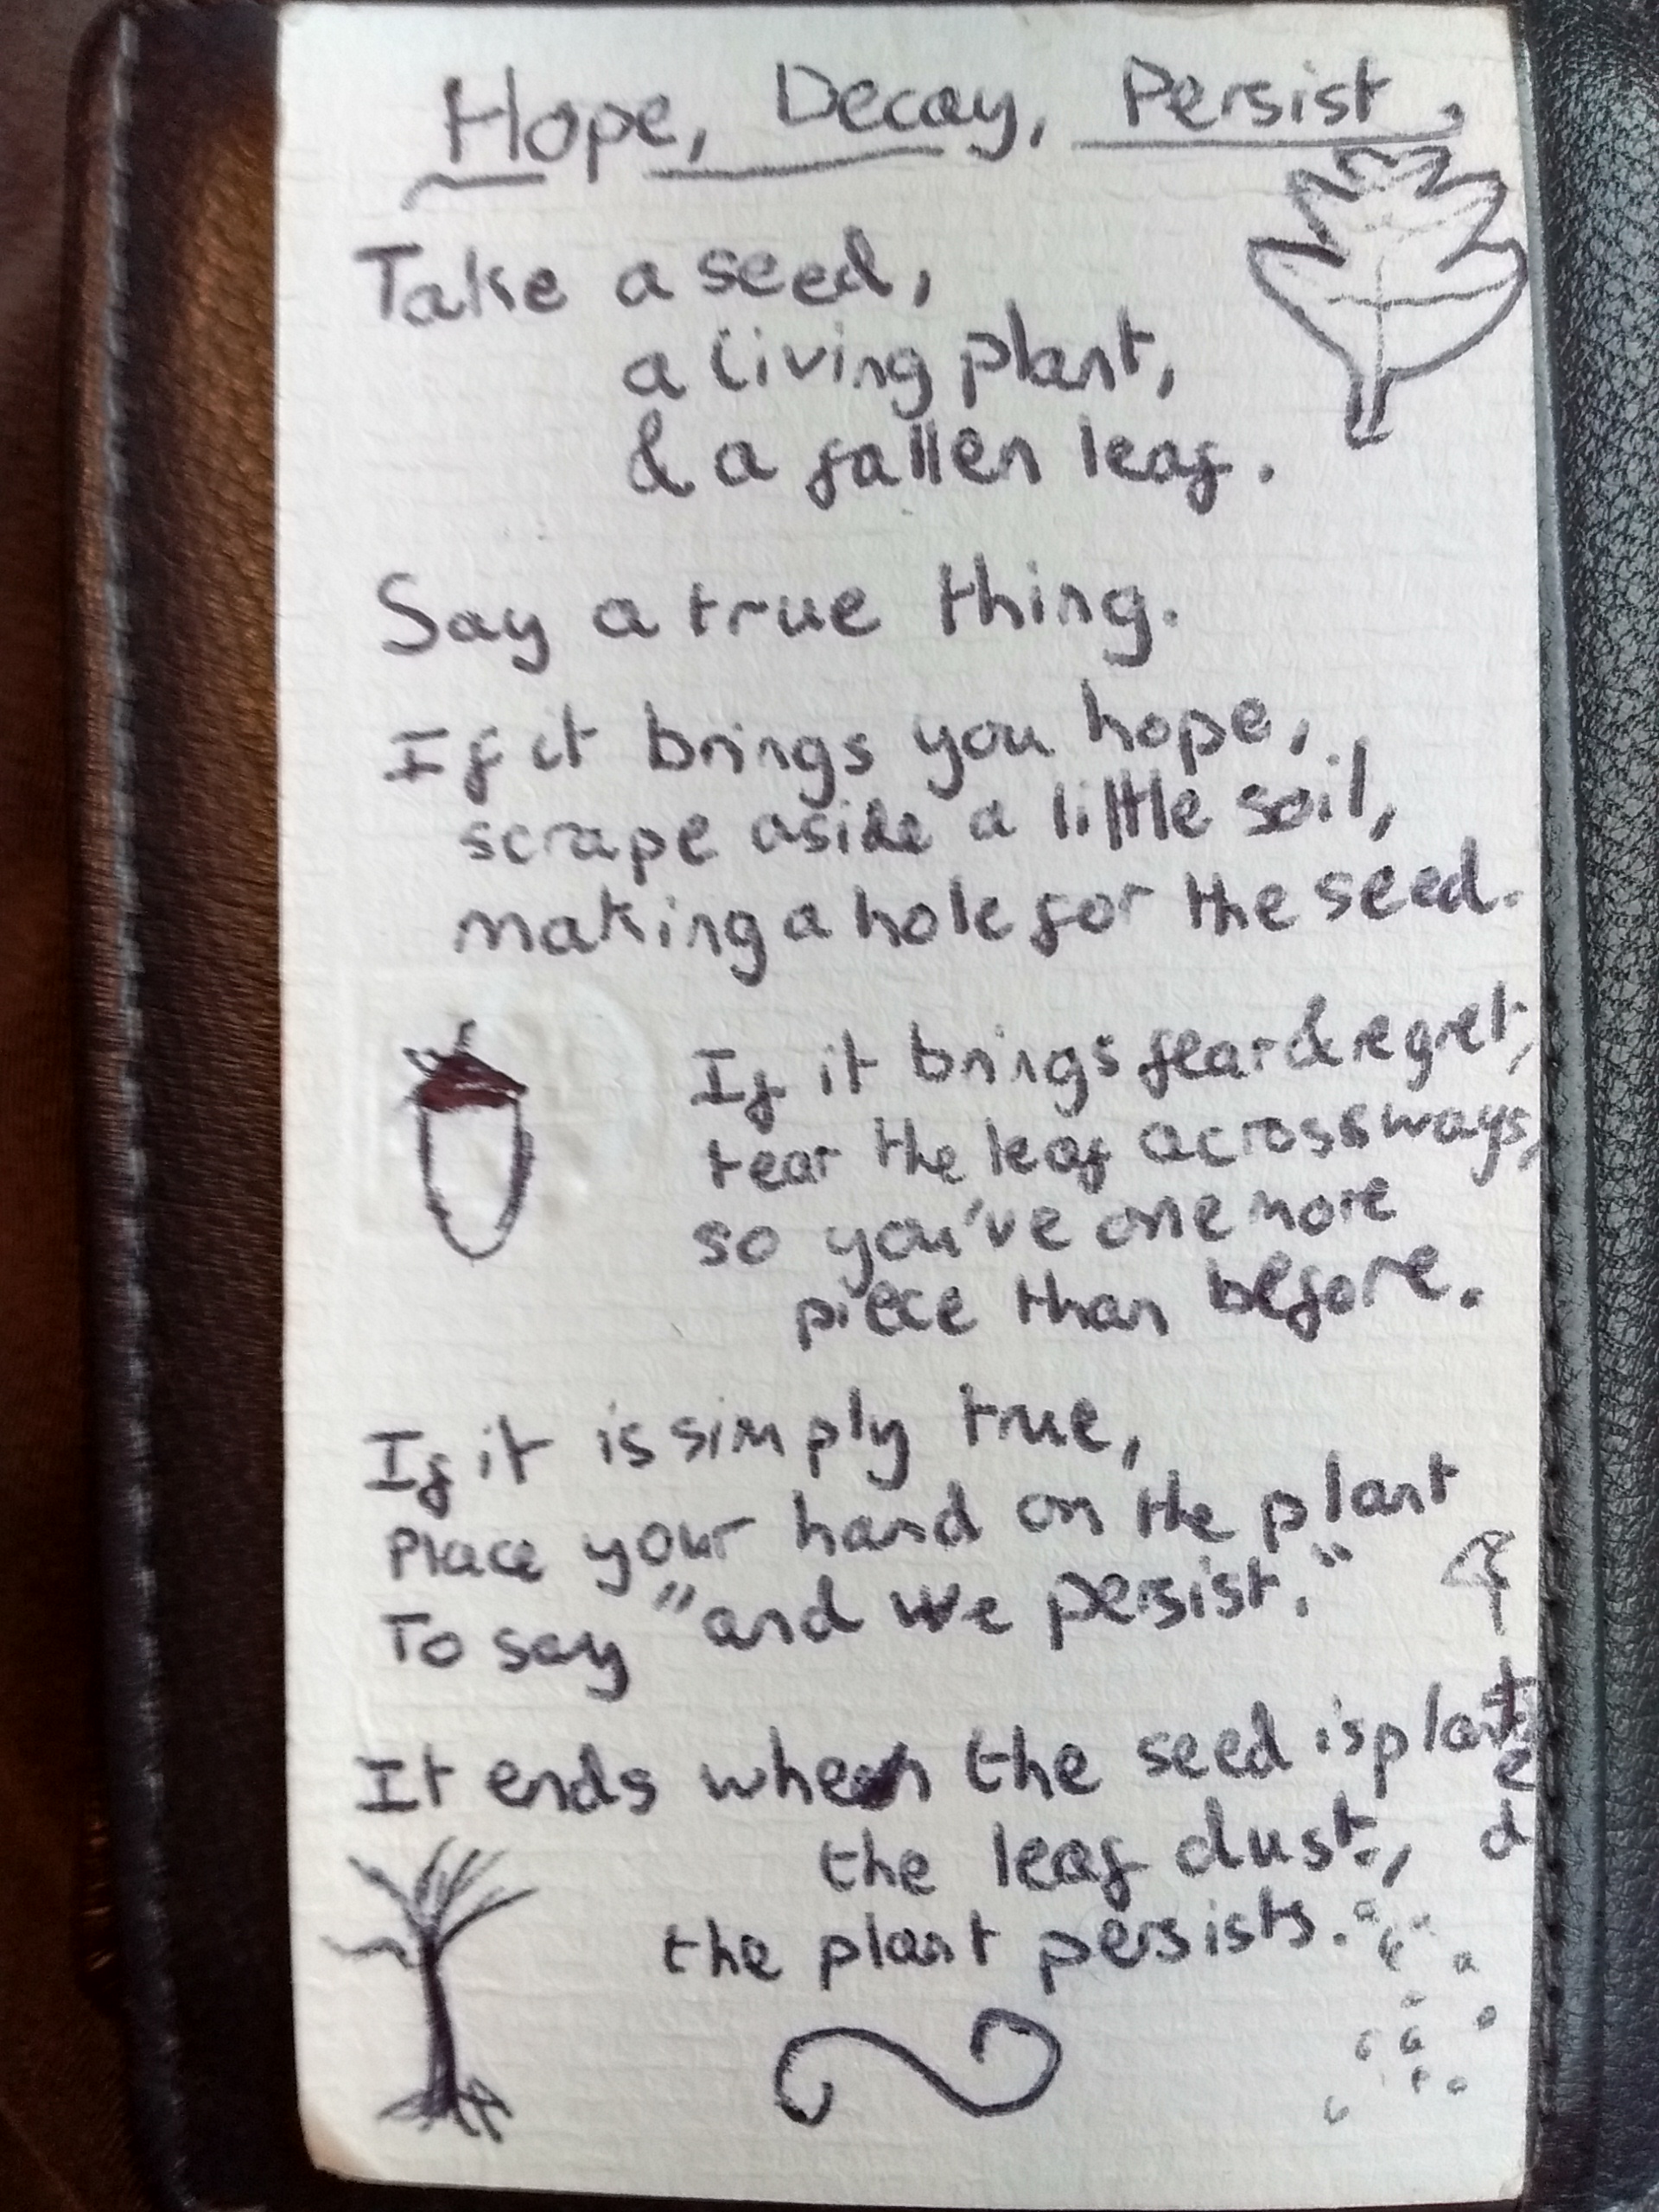 Hope, Decay, Persist.
Take a seed,
a living plant,
& a fallen leaf.
Say a true thing.
If it brings you hope,
scrape aside a little soil,
making a hole for the seed.
If it brings fear & regret,
tear the leaf acrossways,
so you've one more
piece than before.
If it is simply true,
Place your hand on the plant
To say "and we persist."
It ends when the seed is planted
the leaf dust,
the plant persists.